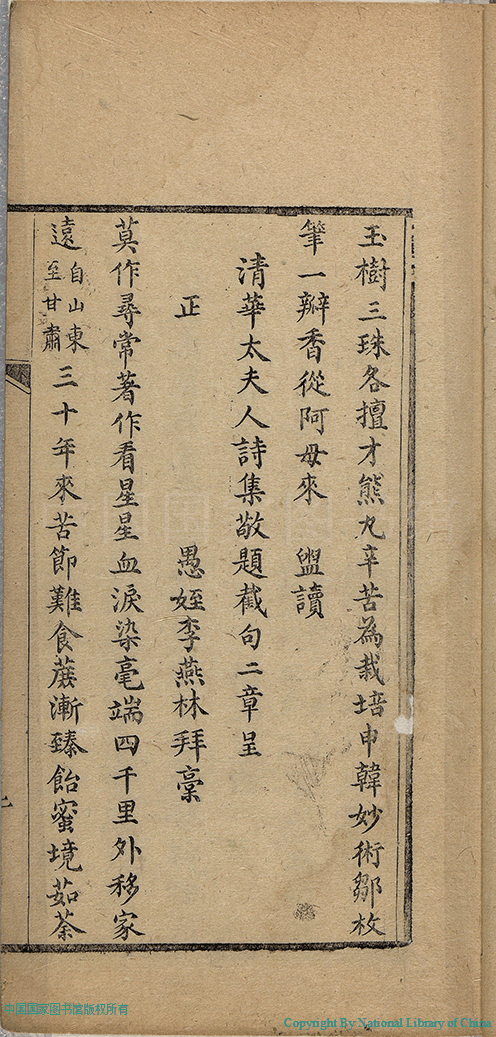 玉樹三珠各擅才熊丸辛苦為栽培申韓妙術鄒枚
筆一瓣香從阿母來　盥讀
清華太夫人詩集敬題截句二章呈
正
愚姪李燕林拜稾
莫作尋常著作看星星血淚染毫端四千里外移家
遠自山東至甘肅三十年來苦節難食蔗漸臻飴蜜境茹荼
中国国家图书馆版权所有
Copyright By National Library of China